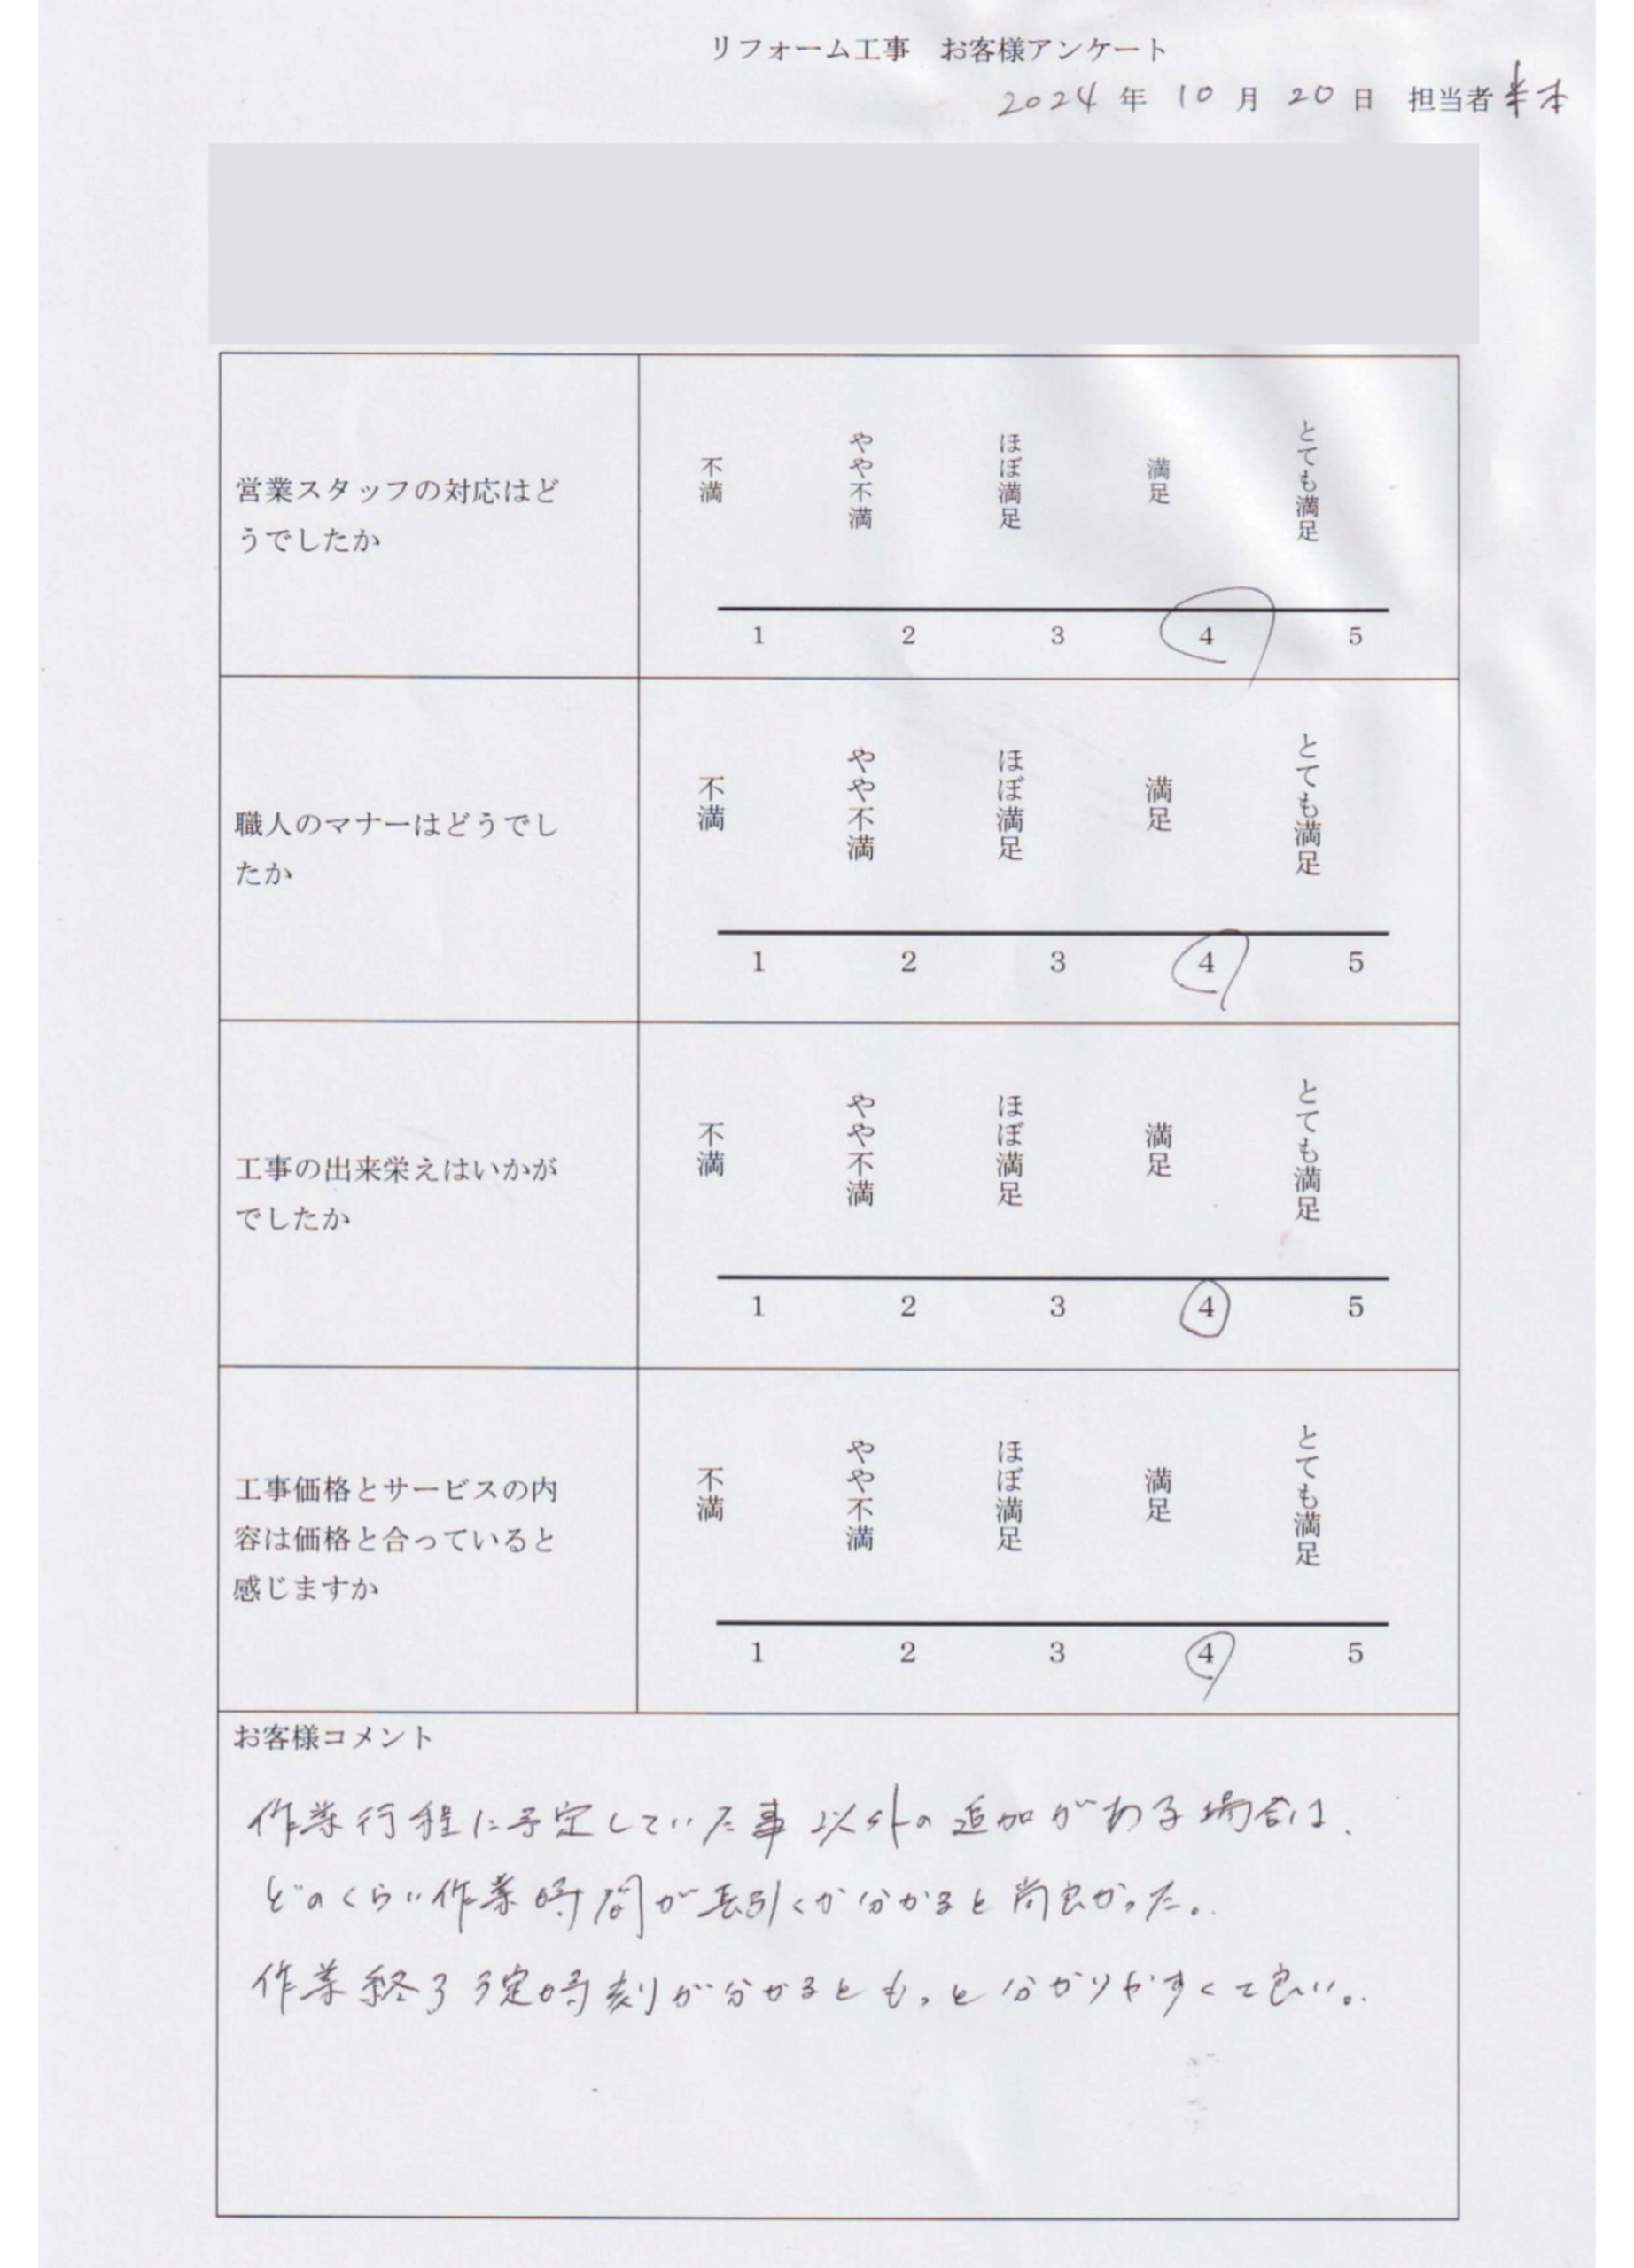 リフォーム工事　お客様アンケート
2024 年 10 月 20 日 担当者
営業スタッフの対応はど
うでしたか
不満 やや不満 ほぼ満足 満足 とても満足
1 2 3 4 5
職人のマナーはどうでし
たか
不満 やや不満 ほぼ満足 満足 とても満足
1 2 3 4 5
工事の出来栄えはいかが
でしたか
不満 やや不満 ほぼ満足 満足 とても満足
1 2 3 4 5
工事価格とサービスの内
容は価格と合っていると
感じますか
不満 やや不満 ほぼ満足 満足 とても満足
1 2 3 4 5
お客様コメント
作業行程に予定していた事以外の追加がある場合は、
どのくらい作業時間が長引くか分かると尚良かった。
作業終了予定時刻が分かるともっと分かりやすくて良い。